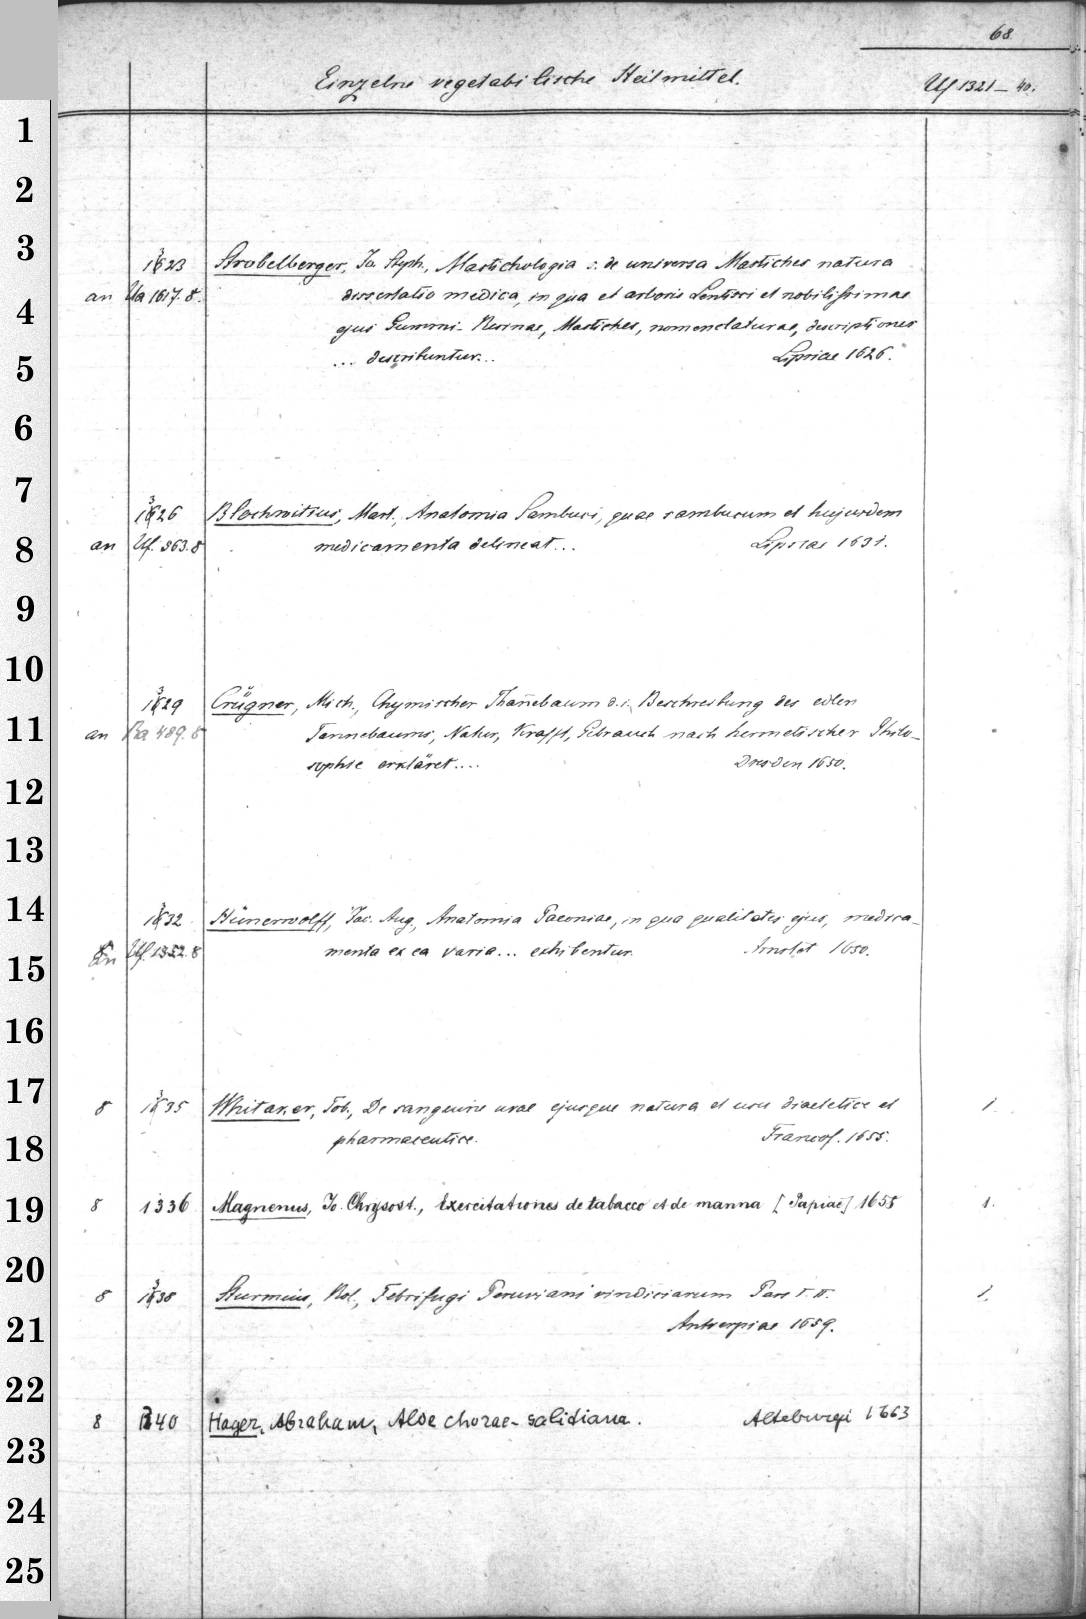 68
Einzelne vegetabilische Heilmittel. Uf 1321-40.
1
2
3
1323 Strobelberger, Jo. Steph., Mastichologia s. de universa Mastiches natura
an Ua 1617. 8. dissertatio medica, in qua et arboris Lentisci et nobilissimae
4
ejus Gummi-Resinae, Mastiches, nomenclaturae, descriptiones
5
... describuntur... Lipsiae 1626.
6
7
1326 Blochwitius, Mart., Anatomia Sambuci, quae sambucum et hujusdem
8
an Uf. 363. 8 medicamenta delineat... Lipsiae 1631.
9
10
1329 Crügner, Mich., Chymischer Thañebaum d. i. Beschreibung des edlen
11
an Ra 489. 8 Tannebaums, Natur, Krafft, Gebrauch nach hermetischer Philo-
sophie erkläret.... Dresden 1650.
12
13
14
1332 Hünerwolff, Jac. Aug., Anatomia Paeoniae, in qua qualitates ejus, medica-
15
an Uf. 1352. 8 menta ex ea varia... exhibentur. Arnstst 1650.
16
17
8 1335 Whitaker, Tob., De sanguine uvae ejusque natura et usu diaetetice et 1.
18
pharmaceutice. Francof. 1655.
19
8 1336 Magnenus, Jo. Chrysost., Exercitationes de tabacco et de manna [Papiae] 1658 1.
20
8 1338 Sturmius, Rol., Febrifugi Peruviani vindiciarum Pars I. II. 1.
21
Antverpiae 1659.
22
8 1340 Hager, Abraham, Aloe chorae-salidiana. Alteburgi 1663
23
24
25